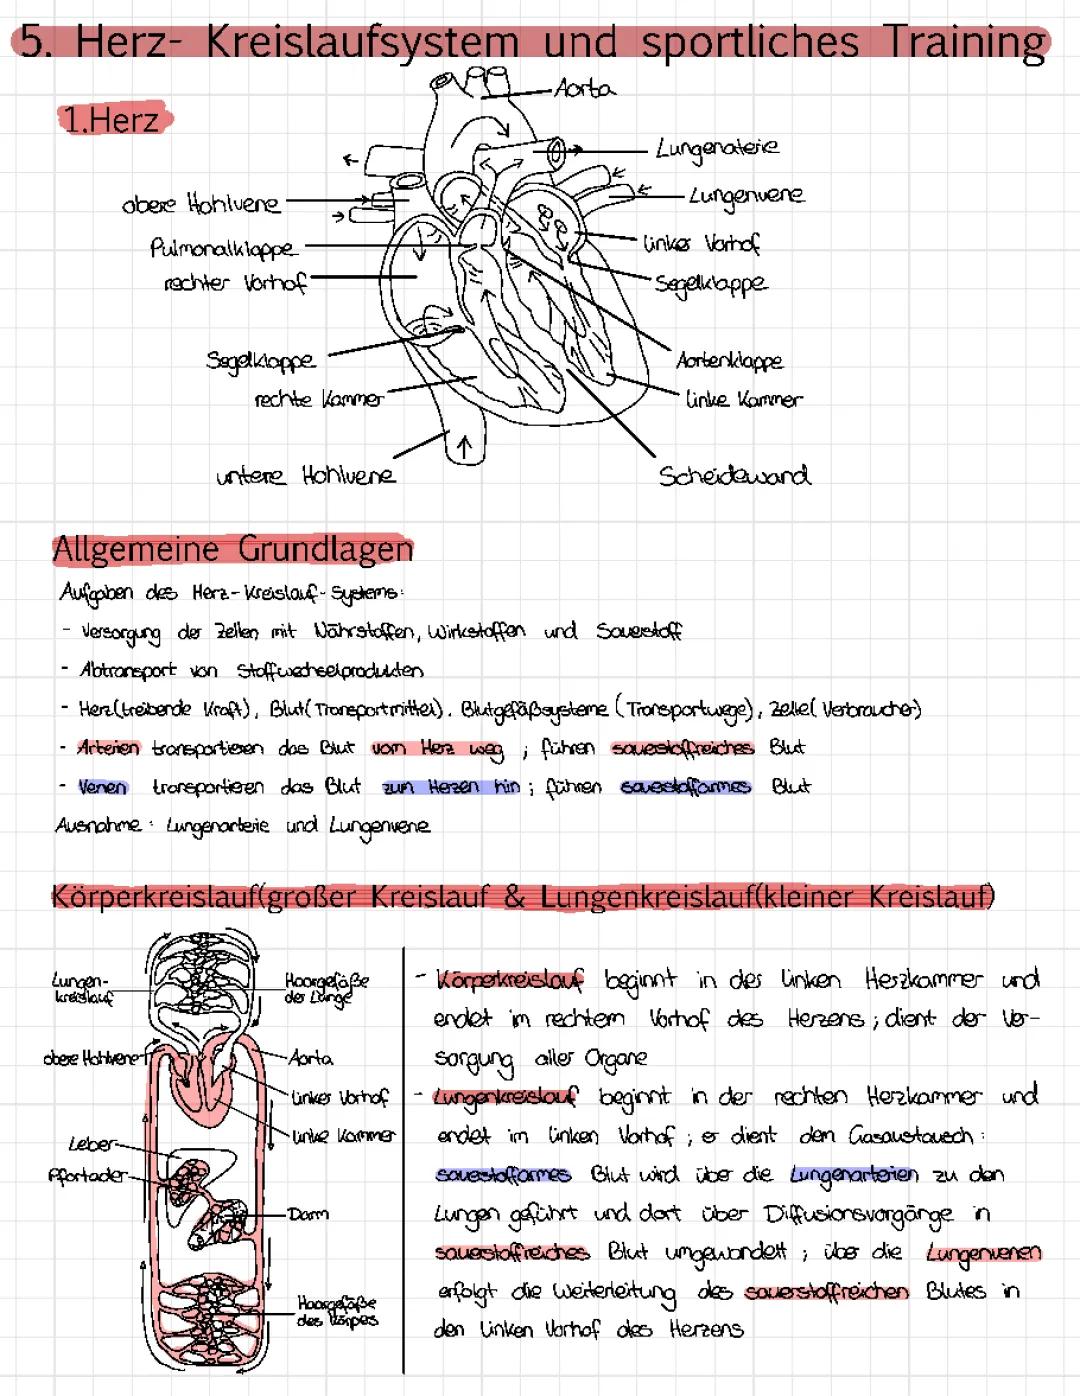 5. Herz- Kreislaufsystem und sportliches Training
1.Herz
Aorta
Lungenaterie
obere Hohlvene
Lungenvene
Pulmonalklappe
linker Vorhof
rechter Vorhof
Segelklappe
Segelklappe
Aortenklappe
rechte Kammer
linke Kammer
untere Hohlvene
Scheidewand
Allgemeine Grundlagen
Aufgaben des Herz-Kreislauf-Systems:
- Versorgung der Zellen mit Nährstoffen, Wirkstoffen und Sauerstoff
- Abtransport von Stoffwechselprodukten
- Herz(treibende Kraft), Blut(Transportmittel), Blutgefäßsysteme (Transportwege), Zelle(Verbraucher)
- Arterien transportieren das Blut vom Herz weg ; führen sauerstoffreiches Blut
- Venen transportieren das Blut zum Herzen hin ; führen sauerstoffarmes Blut
Ausnahme : Lungenarterie und Lungenvene
Körperkreislauf(großer Kreislauf & Lungenkreislauf(kleiner Kreislauf)
Lungen-
kreislauf
Haargefäße
der Lunge
obere Hohlvene
Aorta
linker Vorhof
linke Kammer
Leber
Pfortader
Darm
Haargefäße
des Körpers
- Körperkreislauf beginnt in der linken Herzkammer und
endet im rechtem Vorhof des Herzens ; dient der Ver-
sorgung aller Organe
- Lungenkreislauf beginnt in der rechten Herzkammer und
endet im linken Vorhof ; er dient dem Gasaustausch :
sauerstoffarmes Blut wird über die Lungenarterien zu den
Lungen geführt und dort über Diffusionsvorgänge in
sauerstoffreiches Blut umgewandelt ; über die Lungenvenen
erfolgt die Weiterleitung des sauerstoffreichen Blutes in
den linken Vorhof des Herzens